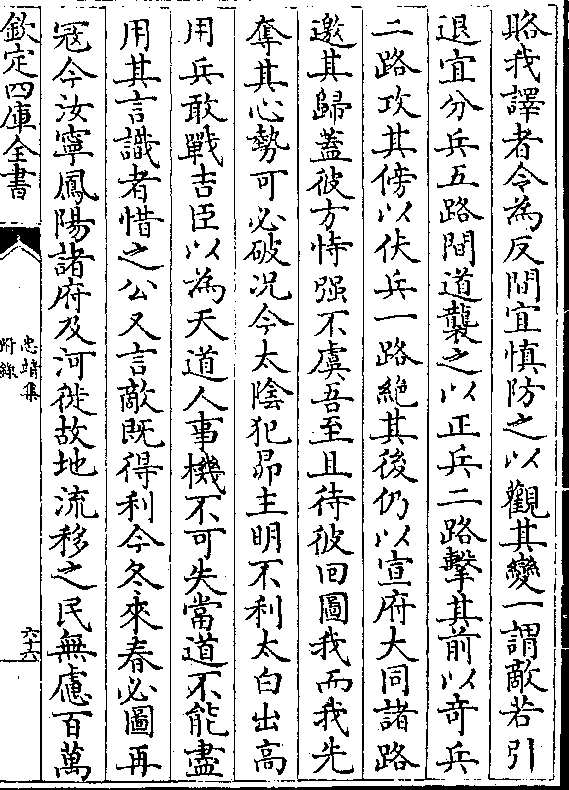 賂我譯者令為反間宜慎防之以觀其變一謂敵若引
退宜分兵五路間道襲之以正兵二路擊其前以竒兵
二路攻其傍以伏兵一路絶其後仍以宣府大同諸路
邀其歸蓋彼方恃强不虞吾至且待彼回圖我而我先
奪其心勢可必破况今太陰犯昴主明不利太白出高
用兵敢戰吉臣以為天道人事機不可失當道不能盡
用其言識者惜之公又言敵既得利今冬來春必圖再
冦今汝寧鳳陽諸府及河徙故地流移之民無慮百萬
欽定四庫全書
忠靖集
附錄
六十六